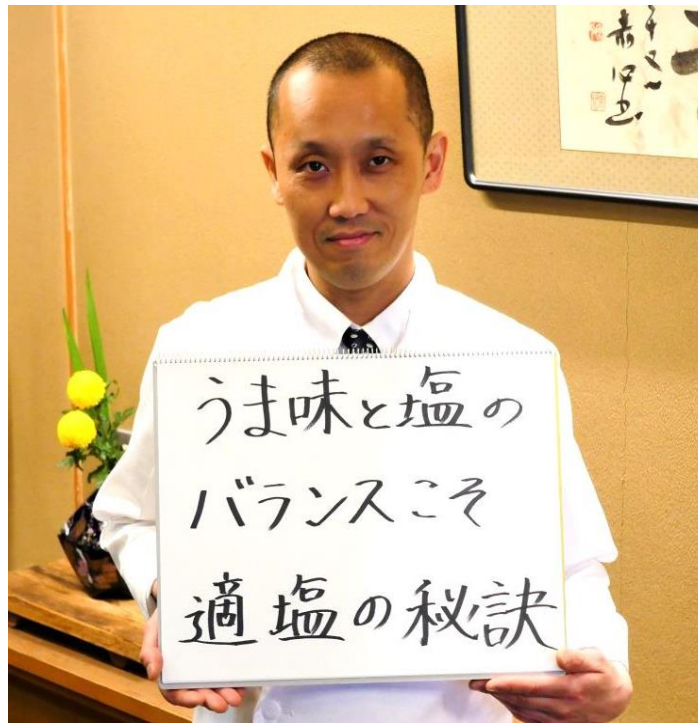 うま味と塩の
バランスこそ
適塩の秘訣